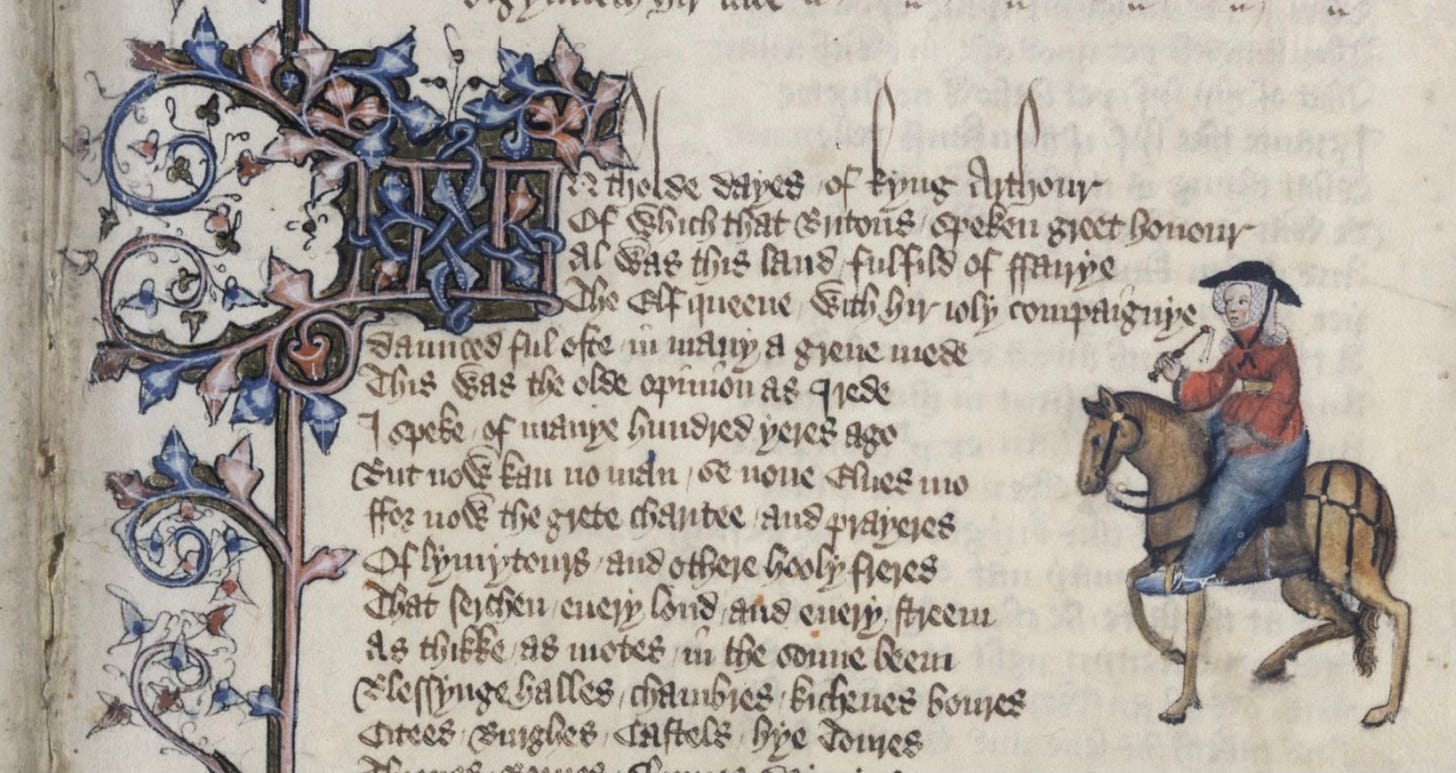 IN tholde dayes / of kyng Arthour
Of which that Britons / speken greet honour
Al was this land / fulfild of ffairye
The Elf queene / with hir ioly compaignye
Daunced ful ofte / in many a grene mede
This was the olde opinion as I rede
I speke / of manye hundred yeres ago
But now kan no man / se none Elues mo
ffor now the grete charitee / and prayeres
Of lymytours / and othere hooly freres
That serchen / euery lond / and euery streem
As thikke / as motes / in the sonne beem
Blessynge halles / chambres / kichenes boures
Citees / Burghes / Castels / hye Toures